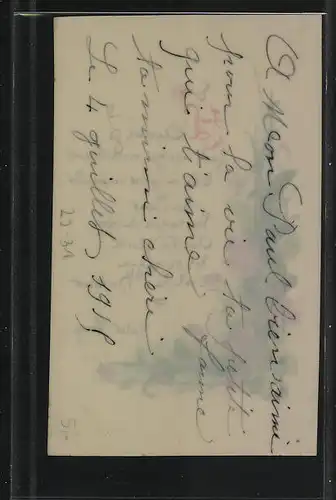 A Mon Paul bien aimé
pour la vie ta petite
qui t'aime
ta mimi chéri
Le 4 juillet 1918
23-31